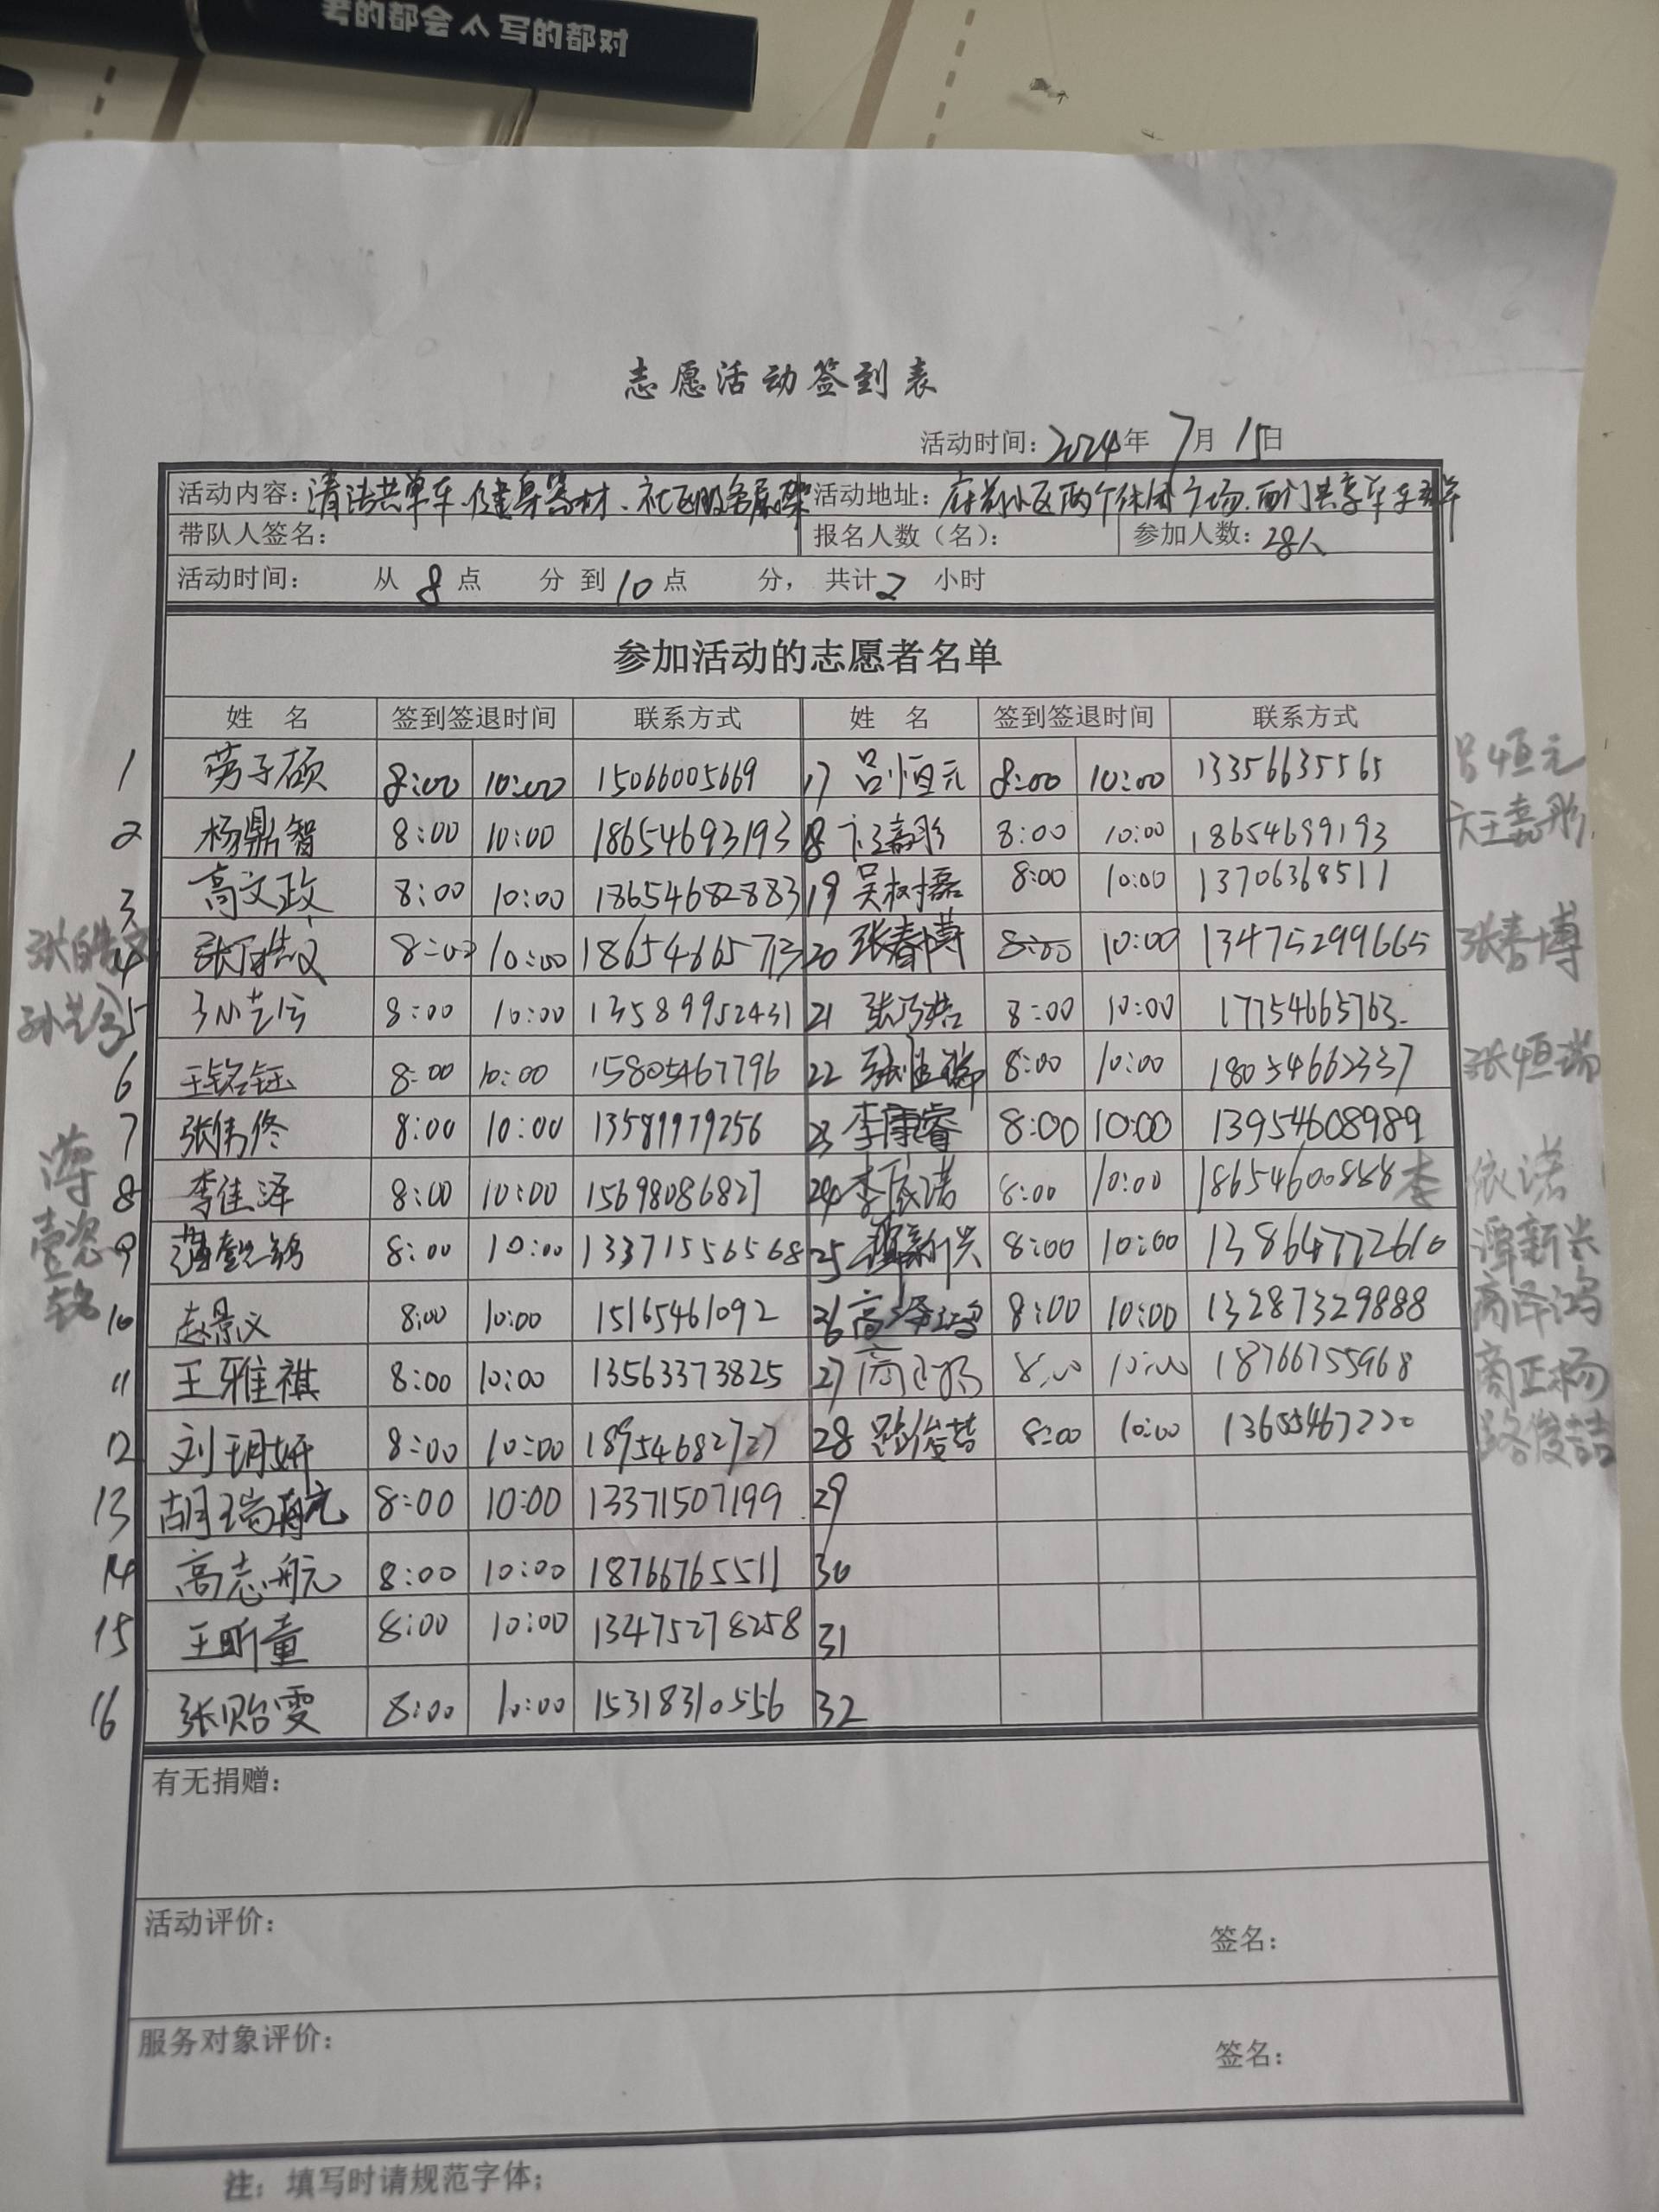 考的都会 写的都对
志愿活动签到表
活动时间：2024年 7月 15日
活动内容：清洁共单车、健身器材、社区服务 活动地址：府前小区两个休闲广场、西门共享单车
带队人签名： 报名人数（名）： 参加人数：28人
活动时间： 从 8 点 分到 10 点 分，共计 2 小时
参加活动的志愿者名单
姓 名 签到签退时间 联系方式 姓 名 签到签退时间 联系方式
1 劳子硕 8:00 10:00 15066005669 17 吕恒元 8:00 10:00 13356635565 吕恒元
2 杨鼎智 8:00 10:00 18654693193 18 卞王嘉彤 8:00 10:00 18654699193 卞王嘉彤
3 高文政 8:00 10:00 18654682883 19 吴树磊 8:00 10:00 13706368511
张皓文 4 张皓文 8:00 10:00 18654665773 20 张春博 8:00 10:00 13475299665 张春博
5 8:00 10:00 13589952431 21 张乃皓 8:00 10:00 17754665763
6 王铭钰 8:00 10:00 15805467796 22 张恒瑞 8:00 10:00 18054662337 张恒瑞
7 张伟佟 8:00 10:00 13589979256 23 李康睿 8:00 10:00 13954608989
8 李佳泽 8:00 10:00 15698086827 24 李依诺 8:00 10:00 18654600858 李依诺
薄壹铭 9 8:00 10:00 13371556568 25 谭新兴 8:00 10:00 13864772610 谭新兴
10 赵景义 8:00 10:00 15165461092 26 高泽鸿 8:00 10:00 13287329888 商泽鸿
11 王雅祺 8:00 10:00 13563373825 27 商正杨 8:00 10:00 18766755968 商正杨
12 刘玥妍 8:00 10:00 18954682727 28 路俊喆 8:00 10:00 13605467220 路俊喆
13 胡瑞航 8:00 10:00 13371507199 29
14 高志航 8:00 10:00 18766765511 30
15 王昕童 8:00 10:00 13475278258 31
16 张贻雯 8:00 10:00 15318310556 32
有无捐赠：
活动评价： 签名：
服务对象评价： 签名：
注：填写时请规范字体；